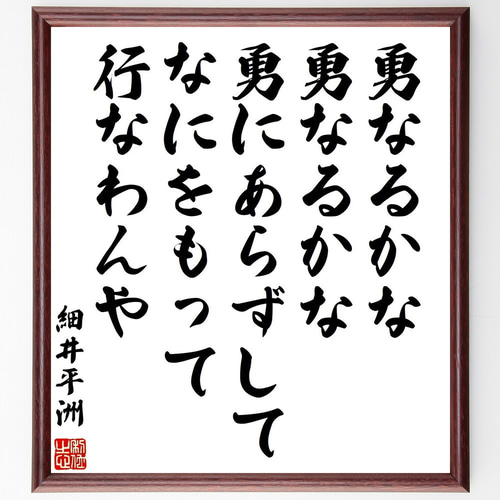 勇なるかな
勇なるかな
勇にあらずして
なにをもって
行なわんや
細井平洲